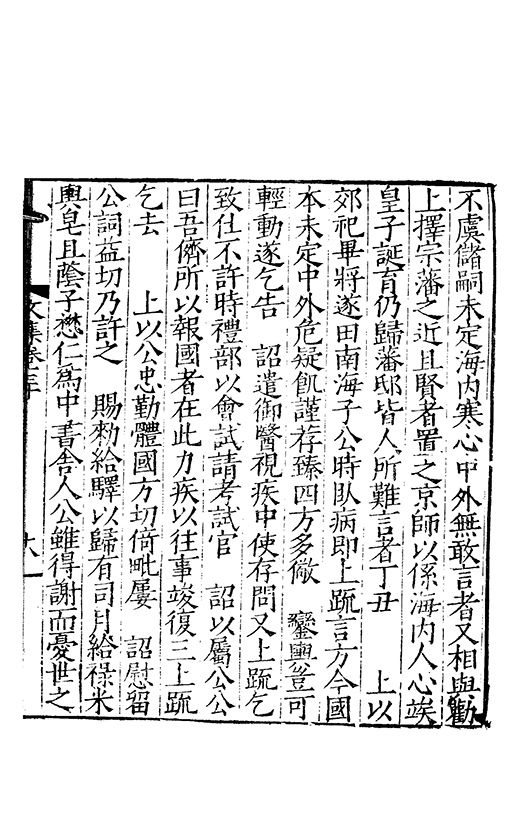 不虞儲嗣未定海内寒心中外無敢言者又相與勸
上擇宗藩之近且賢者置之京師以係海内人心竢
皇子誕育仍歸藩邸皆人所難言者丁丑　　上以
郊祀畢將遂田南海子公時臥病即上䟽言方今國
本未定中外危疑飢謹荐臻四方多儆　鑾輿豈可
輕動遂乞告　詔遣御醫視疾中使存問又上䟽乞
致仕不許時禮部以會試請考試官　詔以屬公公
曰吾儕所以報國者在此力疾以往事竣復三上䟽
乞去　　上以公忠勤體國方切倚毗屢　詔慰留
公詞益切乃許之　賜勑給驛以歸有司月給祿米
輿皂且蔭子懋仁為中書舍人公雖得謝而憂世之
文集卷三十　十八